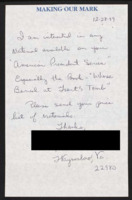 MAKING OUR MARK
12-29-99
I am interested in any
Material available on your
"American President Series"
Especially the Book, "Whose
Buried at Grant's Tomb"
Please send you your
list of Materials.
Thanks,
Alexandria, Va